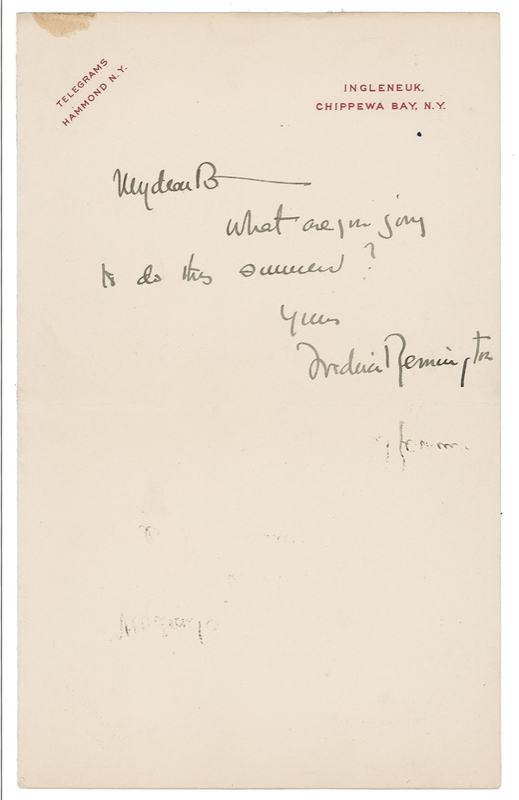 TELEGRAMS
HAMMOND N.Y.
INGLENEUK,
CHIPPEWA BAY, N.Y.
My dear B
What are you going
to do this summer?
Yours
Frederic Remington